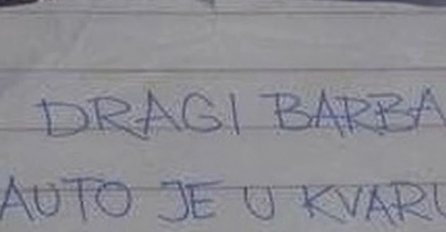 DRAGI BARBA
AUTO JE U KVARU